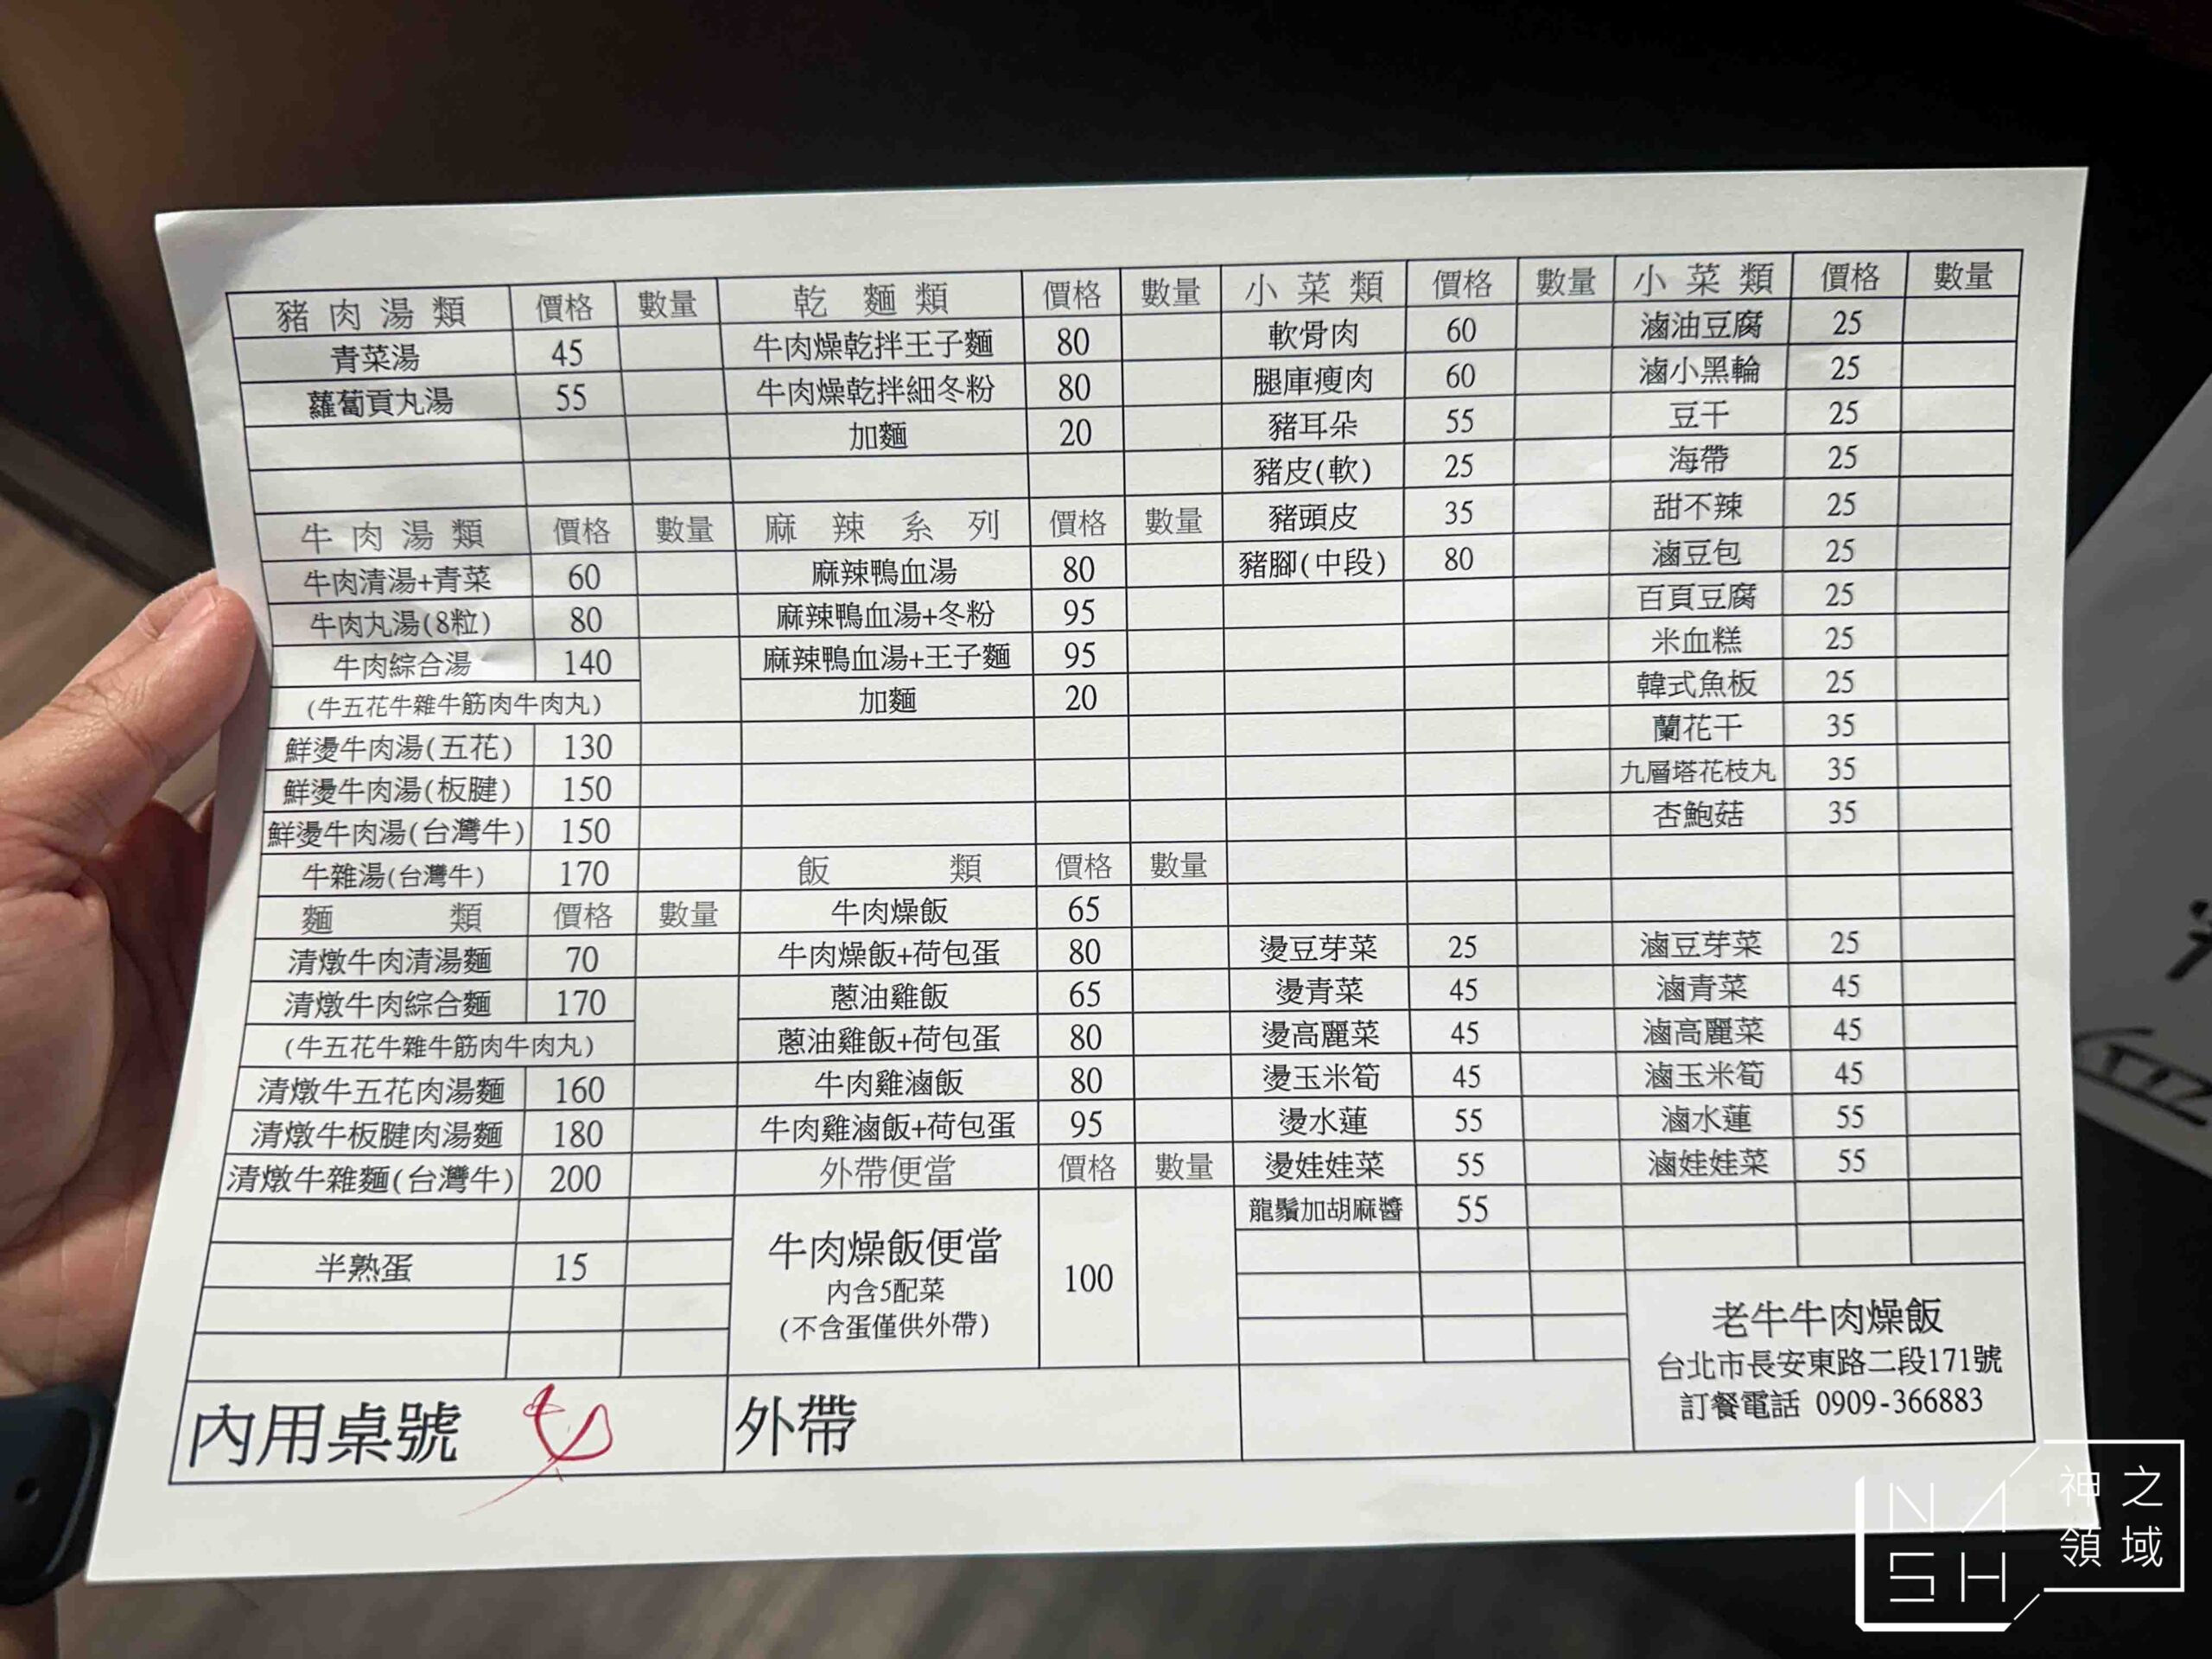 豬肉湯類 價格 數量
青菜湯 45
蘿蔔貢丸湯 55
牛肉湯類 價格 數量
牛肉清湯+青菜 60
牛肉丸湯(8粒) 80
牛肉綜合湯 140
(牛五花牛雜牛筋肉牛肉丸)
鮮燙牛肉湯(五花) 130
鮮燙牛肉湯(板腱) 150
鮮燙牛肉湯(台灣牛) 150
牛雜湯(台灣牛) 170
麵類 價格 數量
清燉牛肉清湯麵 70
清燉牛肉綜合麵 170
(牛五花牛雜牛筋肉牛肉丸)
清燉牛五花肉湯麵 160
清燉牛板腱肉湯麵 180
清燉牛雜麵(台灣牛) 200
半熟蛋 15
內用桌號
乾麵類 價格 數量
牛肉燥乾拌王子麵 80
牛肉燥乾拌細冬粉 80
加麵 20
麻辣系列 價格 數量
麻辣鴨血湯 80
麻辣鴨血湯+冬粉 95
麻辣鴨血湯+王子麵 95
加麵 20
飯類 價格 數量
牛肉燥飯 65
牛肉燥飯+荷包蛋 80
蔥油雞飯 65
蔥油雞飯+荷包蛋 80
牛肉雞滷飯 80
牛肉雞滷飯+荷包蛋 95
外帶便當 價格 數量
牛肉燥飯便當 100
內含5配菜
(不含蛋僅供外帶)
外帶
小菜類 價格 數量
軟骨肉 60
腿庫瘦肉 60
豬耳朵 55
豬皮(軟) 25
豬頭皮 35
豬腳(中段) 80
燙豆芽菜 25
燙青菜 45
燙高麗菜 45
燙玉米筍 45
燙水蓮 55
燙娃娃菜 55
龍鬚加胡麻醬 55
小菜類 價格 數量
滷油豆腐 25
滷小黑輪 25
豆干 25
海帶 25
甜不辣 25
滷豆包 25
百頁豆腐 25
米血糕 25
韓式魚板 25
蘭花干 35
九層塔花枝丸 35
杏鮑菇 35
滷豆芽菜 25
滷青菜 45
滷高麗菜 45
滷玉米筍 45
滷水蓮 55
滷娃娃菜 55
老牛牛肉燥飯
台北市長安東路二段171號
訂餐電話 0909-366883
NASH
神之
領域